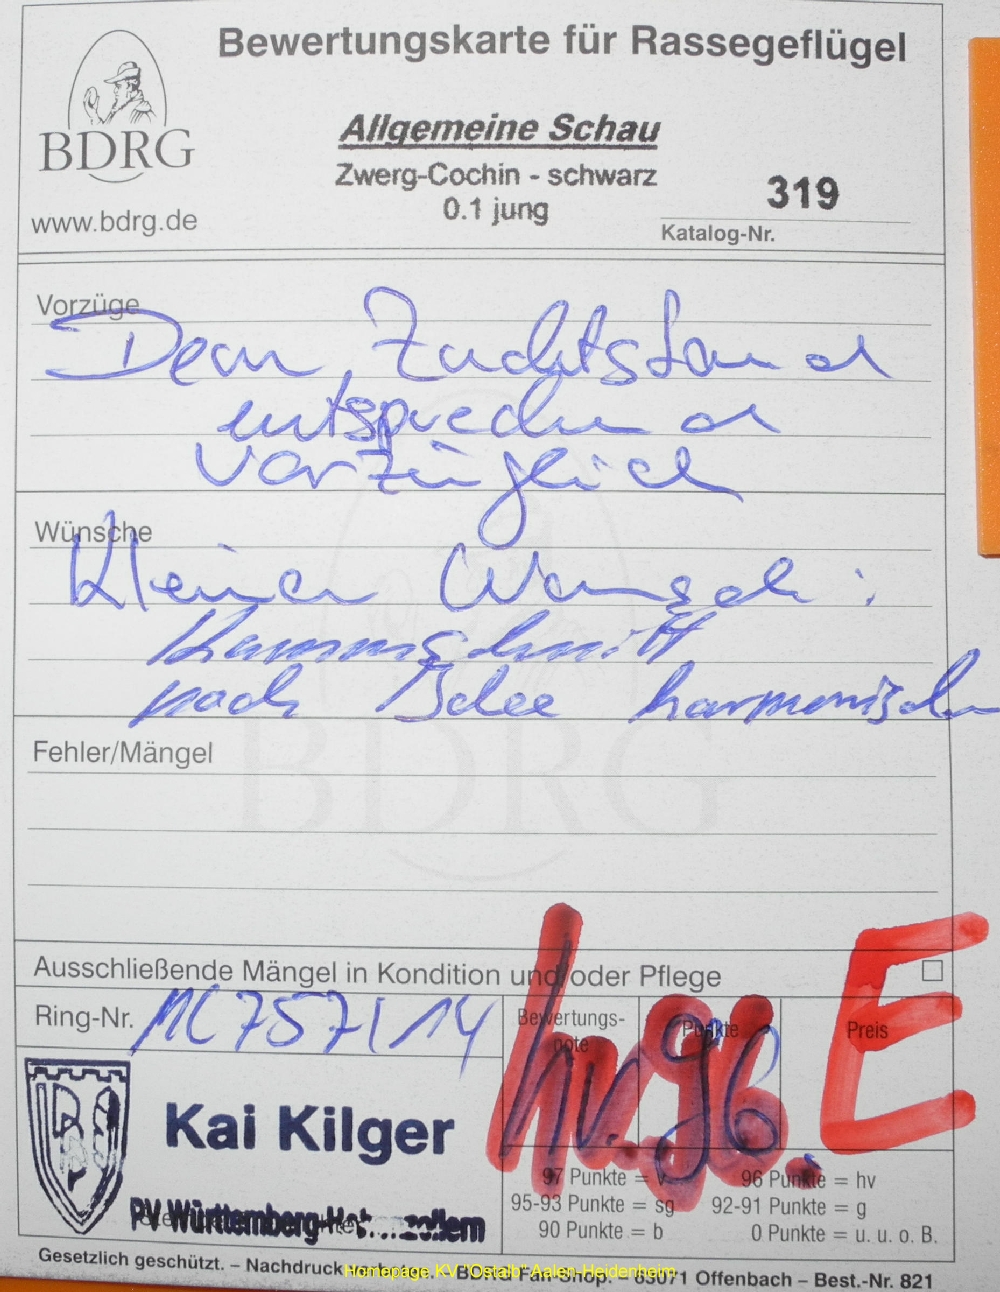 Bewertungskarte für Rassegeflügel
BDRG
www.bdrg.de
Allgemeine Schau
Zwerg-Cochin - schwarz
0.1 jung
319
Katalog-Nr.
Vorzüge
Dem Zuchtstand
entsprechend
vorzüglich
Wünsche
Kleiner Wunsch:
Kammschnitt
noch Idee harmonischer
Fehler/Mängel
BDRG
Ausschließende Mängel in Kondition und/oder Pflege
Ring-Nr. 757/14
Bewertungs-
note
Punkte
Preis
hv. 96. E
Kai Kilger
PV Württemberg-Hohenzollern
97 Punkte = v 96 Punkte = hv
95-93 Punkte = sg 92-91 Punkte = g
90 Punkte = b 0 Punkte = u. u. o. B.
Gesetzlich geschützt. – Nachdruck Offenbach – Best.-Nr. 821
Homepage KV "Ostalb" Aalen-Heidenheim